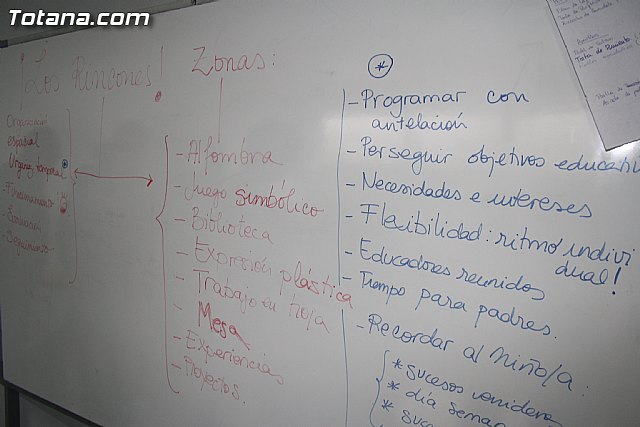 Totana.com
¡Los Rincones!
Organización
espacial
Organiz. temporal *
Seguimiento
Zonas:
- Alfombra
- Juego simbólico
- Biblioteca
- Expresión plástica
- Trabajo en hoja
- Mesa
- Experiencias
- Proyectos.
*
- Programar con
antelación
- Perseguir objetivos educativ
- Necesidades e intereses
- Flexibilidad: ritmo indivi
dual!
- Educadores reunidos
- Tiempo para padres.
- Recordar al Niño/a:
* sucesos venideros
* día seman
* suce